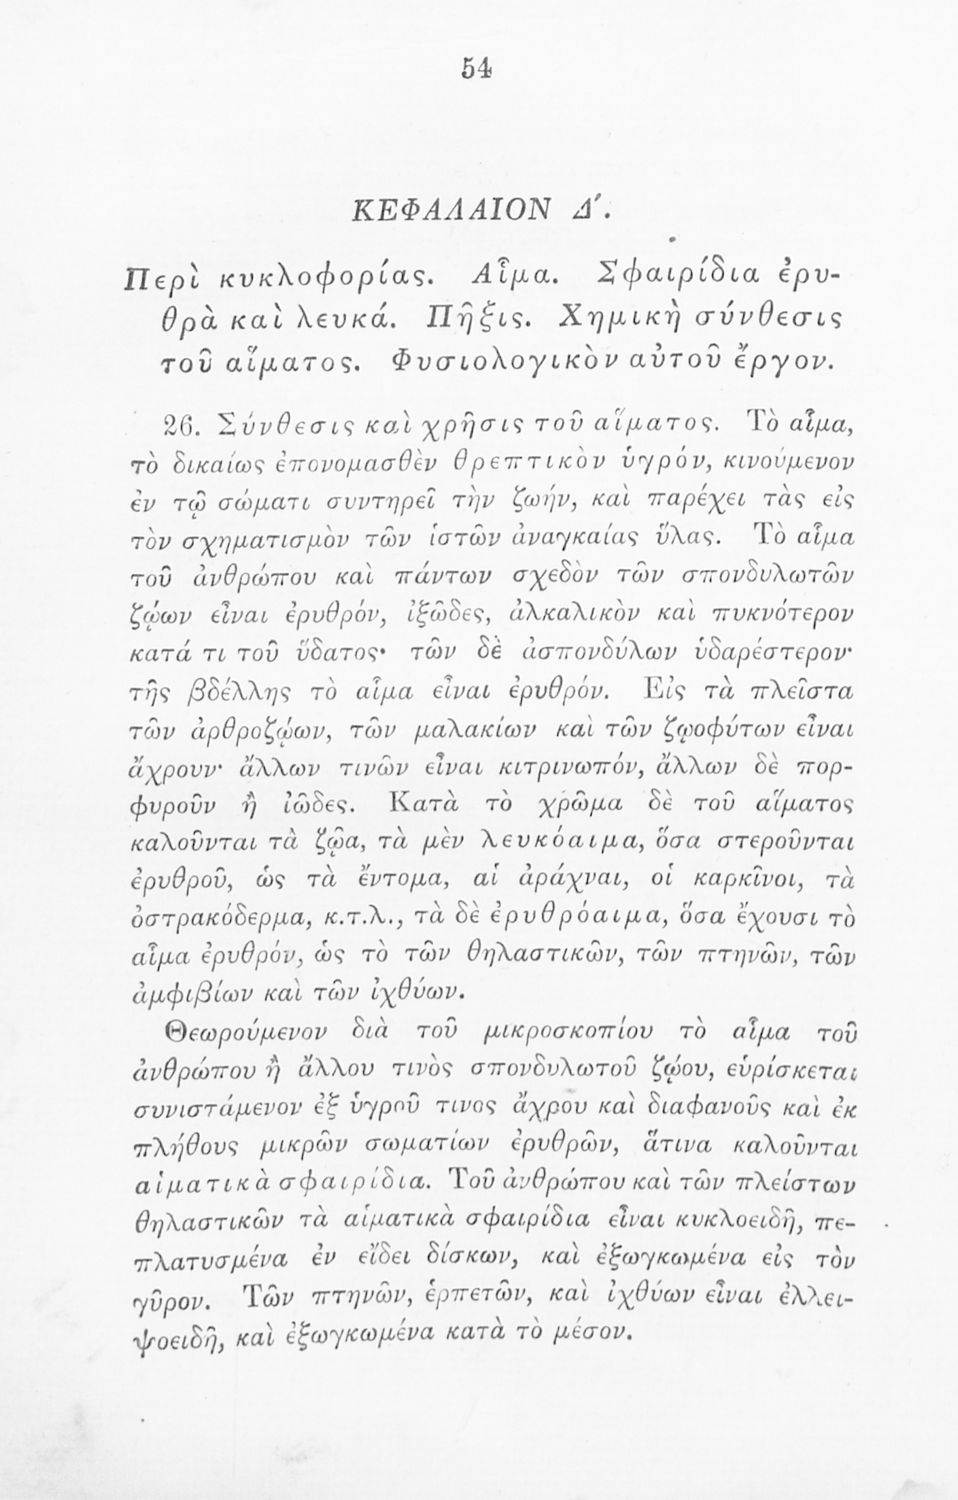 54
ΚΕΦΑΛΑΙΟΝ Δ΄.
Περὶ κυκλοφορίας. Αἷμα. Σφαιρίδια ἐρυ-
θρὰ καὶ λευκά. Πῆξις. Χημικὴ σύνθεσις
τοῦ αἵματος. Φυσιολογικὸν αὐτοῦ ἔργον.
26. Σύνθεσις καὶ χρῆσις τοῦ αἵματος. Τὸ αἷμα,
τὸ δικαίως ἐπονομασθὲν θρεπτικὸν ὑγρόν, κινούμενον
ἐν τῷ σώματι συντηρεῖ τὴν ζωήν, καὶ παρέχει τὰς εἰς
τὸν σχηματισμὸν τῶν ἱστῶν ἀναγκαίας ὕλας. Τὸ αἷμα
τοῦ ἀνθρώπου καὶ πάντων σχεδὸν τῶν σπονδυλωτῶν
ζῴων εἶναι ἐρυθρόν, ἰξῶδες, ἀλκαλικὸν καὶ πυκνότερον
κατά τι τοῦ ὕδατος· τῶν δὲ ἀσπονδύλων ὑδαρέστερον·
τῆς βδέλλης τὸ αἷμα εἶναι ἐρυθρόν. Εἰς τὰ πλεῖστα
τῶν ἀρθροζῴων, τῶν μαλακίων καὶ τῶν ζῳοφύτων εἶναι
ἄχρουν· ἄλλων τινῶν εἶναι κιτρινωπόν, ἄλλων δὲ πορ-
φυροῦν ἢ ἰῶδες. Κατὰ τὸ χρῶμα δὲ τοῦ αἵματος
καλοῦνται τὰ ζῷα, τὰ μὲν λευκόαιμα, ὅσα στεροῦνται
ἐρυθροῦ, ὡς τὰ ἔντομα, αἱ ἀράχναι, οἱ καρκῖνοι, τὰ
ὀστρακόδερμα, κ.τ.λ., τὰ δὲ ἐρυθρόαιμα, ὅσα ἔχουσι τὸ
αἷμα ἐρυθρόν, ὡς τὸ τῶν θηλαστικῶν, τῶν πτηνῶν, τῶν
ἀμφιβίων καὶ τῶν ἰχθύων.
Θεωρούμενον διὰ τοῦ μικροσκοπίου τὸ αἷμα τοῦ
ἀνθρώπου ἢ ἄλλου τινὸς σπονδυλωτοῦ ζῴου, εὑρίσκεται
συνιστάμενον ἐξ ὑγροῦ τινος ἄχρου καὶ διαφανοῦς καὶ ἐκ
πλήθους μικρῶν σωματίων ἐρυθρῶν, ἅτινα καλοῦνται
αἱματικὰ σφαιρίδια. Τοῦ ἀνθρώπου καὶ τῶν πλείστων
θηλαστικῶν τὰ αἱματικὰ σφαιρίδια εἶναι κυκλοειδῆ, πε-
πλατυσμένα ἐν εἴδει δίσκων, καὶ ἐξωγκωμένα εἰς τὸν
γῦρον. Τῶν πτηνῶν, ἑρπετῶν, καὶ ἰχθύων εἶναι ἐλλει-
ψοειδῆ, καὶ ἐξωγκωμένα κατὰ τὸ μέσον.